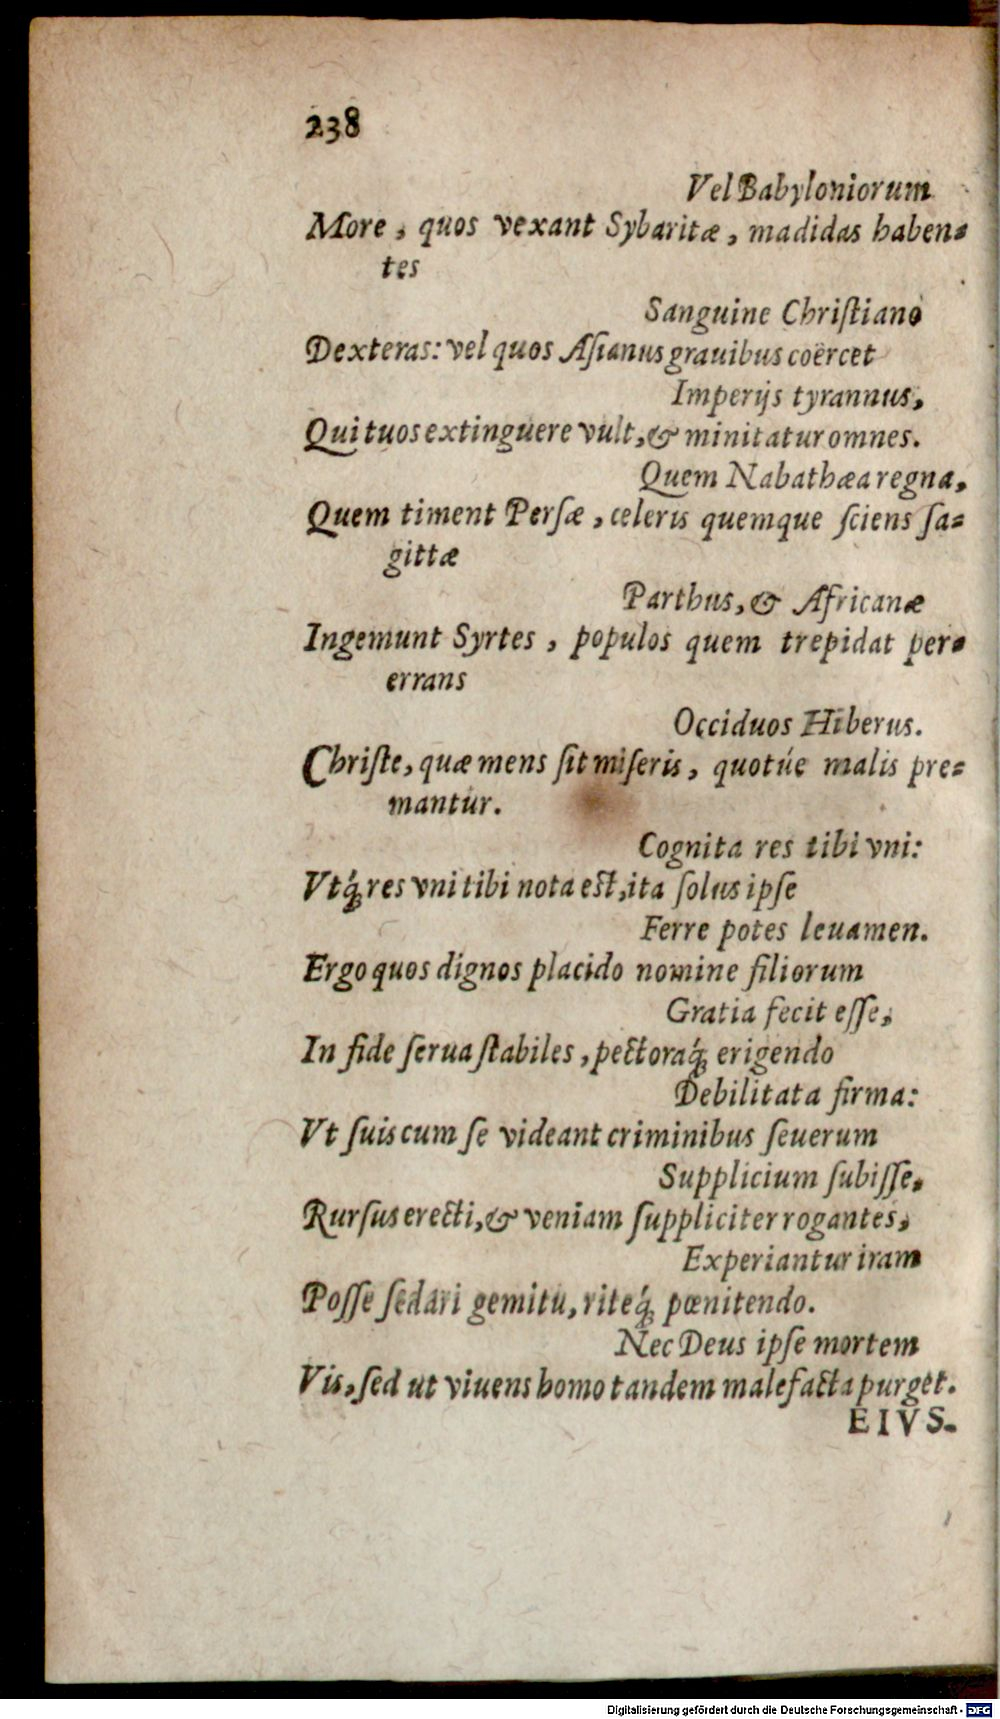 238
Vel Babyloniorum
More, quos vexant Sybaritæ, madidas haben-
tes
Sanguine Chriſtiano
Dexteras: vel quos Aſianus grauibus coërcet
Imperijs tyrannus,
Qui tuos extinguere vult, & minitatur omnes.
Quem Nabathæa regna,
Quem timent Perſæ, celeris quemque ſciens ſa-
gittæ
Parthus, & Africanæ
Ingemunt Syrtes, populos quem trepidat per-
errans
Occiduos Hiberus.
Chriſte, quæ mens ſit miſeris, quotúe malis pre-
mantur.
Cognita res tibi vni:
Vtq́; res vni tibi nota eſt, ita ſolus ipſe
Ferre potes leuamen.
Ergo quos dignos placido nomine filiorum
Gratia fecit eſſe,
In fide ſerua ſtabiles, pectoraq́; erigendo
Debilitata firma:
Vt ſuis cum ſe videant criminibus ſeuerum
Supplicium ſubiſſe,
Rurſus erecti, & veniam ſuppliciter rogantes,
Experiantur iram
Poſſe ſedari gemitu, riteq́; pœnitendo.
Nec Deus ipſe mortem
Vis, ſed ut viuens homo tandem malefacta purget.
EIVS.
Digitalisierung gefördert durch die Deutsche Forschungsgemeinschaft - DFG